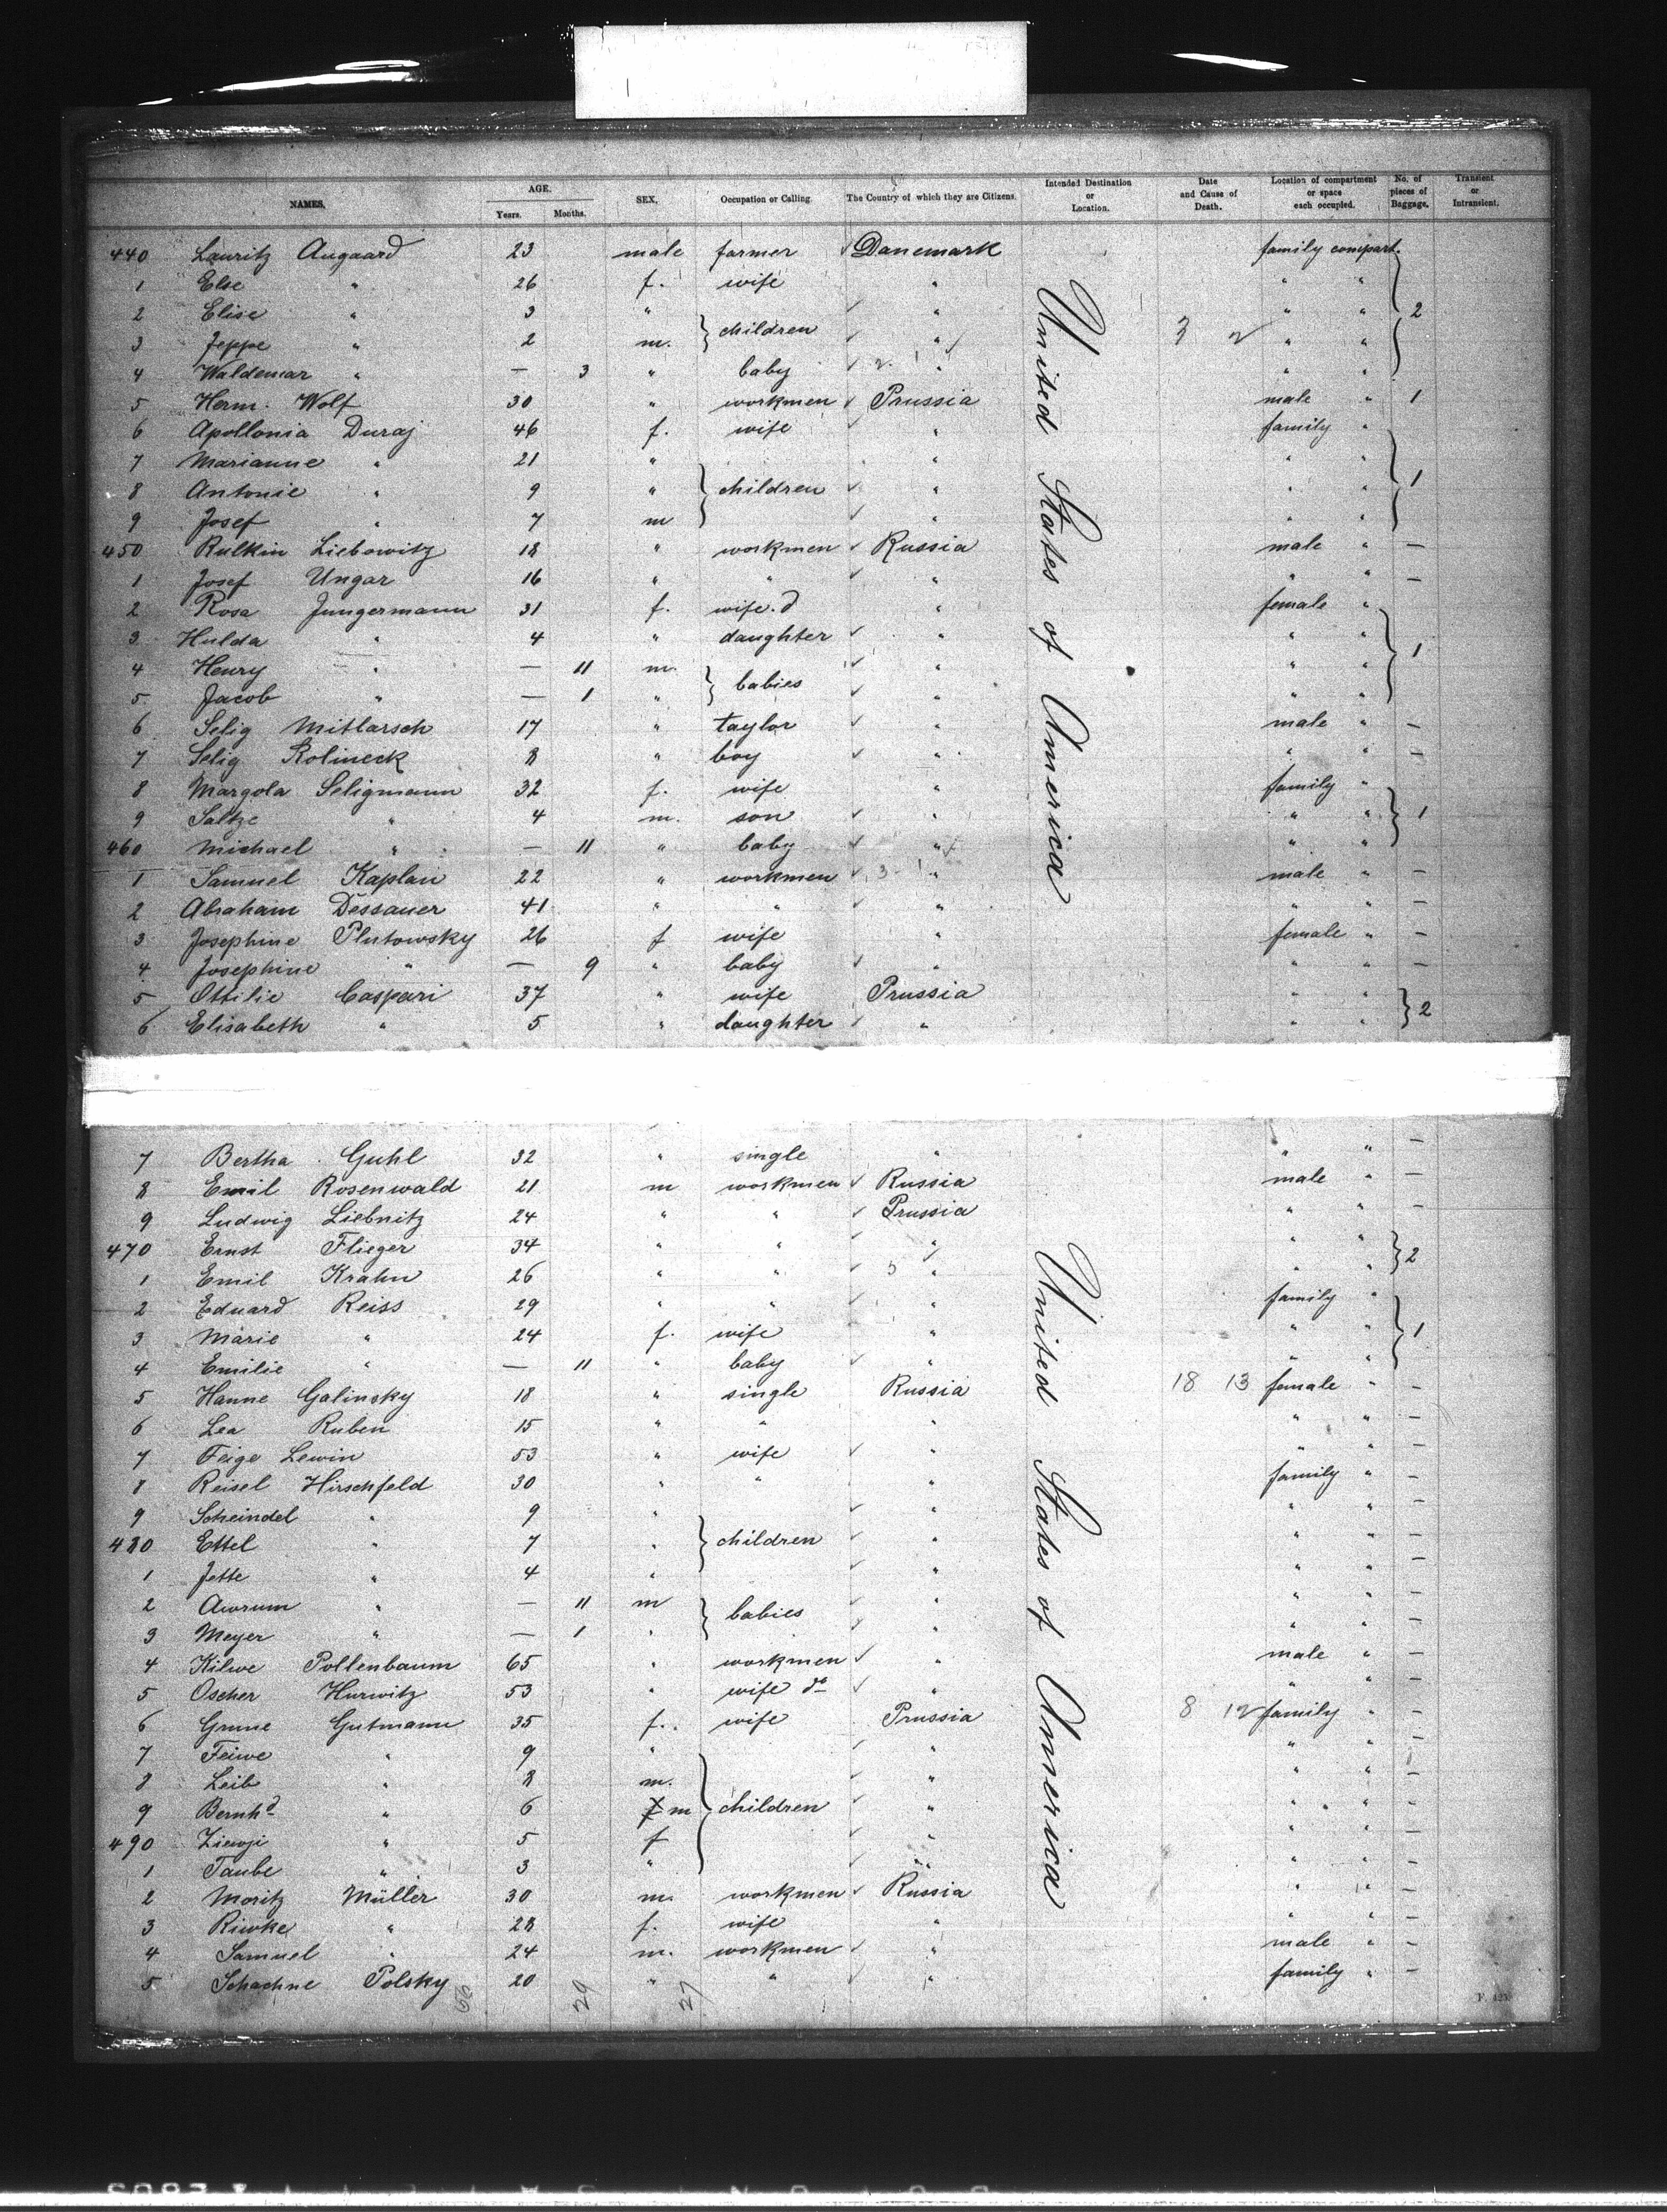 NAMES. AGE. Years. Months. SEX. Occupation or Calling. The Country of which they are Citizens. Intended Destination or Location. Date and Cause of Death. Location of compartment or space each occupied. No. of pieces of Baggage. Transient or Intransient.
440 Lauritz Aagaard 23 male farmer Danemark family compart.
1 Else " 26 f. wife " " "
2 Elise " 3 " children " " " 2
3 Jeppe " 2 m. " 3 2 " "
4 Waldemar " — 3 " baby 2 " " "
5 Herm. Wolf 30 " workmen Prussia male " 1
6 Apollonia Duraj 46 f. wife " family "
7 Marianne " 21 " " " "
8 Antonie " 9 " children " " " 1
9 Josef " 7 m " " "
450 Rulkin Liebowitz 18 " workmen Russia male " —
1 Josef Ungar 16 " " " " " —
2 Rosa Jungermann 31 f. wife.d " female "
3 Hulda " 4 " daughter " " " 1
4 Henry " — 11 m. babies " " "
5 Jacob " — 1 " " " "
6 Selig Mitlarsch 17 " taylor " male " —
7 Selig Rolineck 8 " boy " " " —
8 Margola Seligmann 32 f. wife " family "
9 Saltze " 4 m. son " " " 1
460 Michael " — 11 " baby " " "
1 Samuel Kaplan 22 " workmen 3 " male " —
2 Abraham Dessauer 41 " " " " " —
3 Josephine Plutowsky 26 f wife " female " —
4 Josephine " — 9 " baby " " " —
5 Ottilie Caspari 37 " wife Prussia " " 2
6 Elisabeth " 5 " daughter " " "
United States of America
7 Bertha Guhl 32 " single " " " —
8 Emil Rosenwald 21 m workmen Russia male " —
9 Ludwig Liebnitz 24 " " Prussia " " —
470 Ernst Flieger 34 " " " " " 2
1 Emil Krahn 26 " " 5 " " "
2 Eduard Reiss 29 " " " family "
3 Marie " 24 f. wife " " " 1
4 Emilie " — 11 " baby " " "
5 Hanne Galinsky 18 " single Russia 18 13 female " —
6 Lea Ruben 15 " " " " " —
7 Feige Lewin 53 " wife " " " —
8 Reisel Hirschfeld 30 " " " family " —
9 Scheindel " 9 " " " " —
480 Ettel " 7 " children " " " —
1 Jette " 4 " " " " —
2 Awrum " — 11 m babies " " " —
3 Meyer " — 1 " " " " —
4 Kilwe Pollenbaum 65 " workmen " male " —
5 Oscher Hurwitz 53 " wife do " " " —
6 Grune Gutmann 35 f. wife Prussia 8 12 family " —
7 Feiwe " 9 " " " " —
8 Leib " 8 m. " " " —
9 Bernhd " 6 f m children " " " —
490 Ziewji " 5 f " " " —
1 Taube " 3 " " " " —
2 Moritz Müller 30 m. workmen Russia " " —
3 Riwke " 28 f. wife " " " —
4 Samuel " 24 m. workmen " male " —
5 Schachne Polsky 20 " " " family " —
United States of America
66 29 27